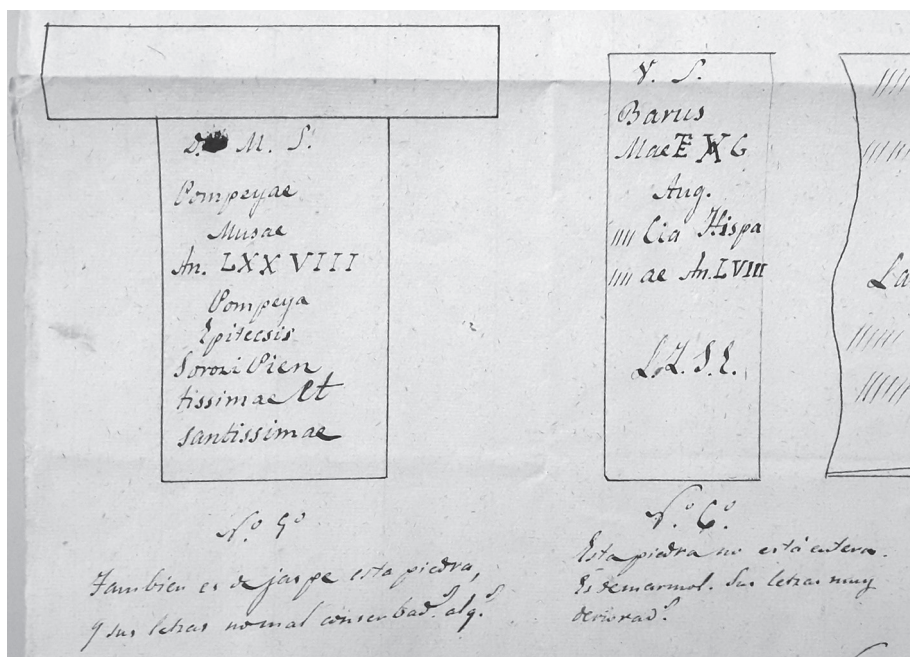 D. M. S.
Pompeyae
Musae
An. LXXVIII
Pompeya
Epitecsis
Sorori Pien
tissimae Et
santissimae
N.º 5º
Tambien es de jaspe esta piedra,
y sus letras no mal conserbad.s alg.s
V. S.
Barus
Mae E X G
Aug.
cia Hispa
ae An. LVIII
N.º 6.º
Esta piedra no está entera.
Es de marmol. Sus letras muy
La